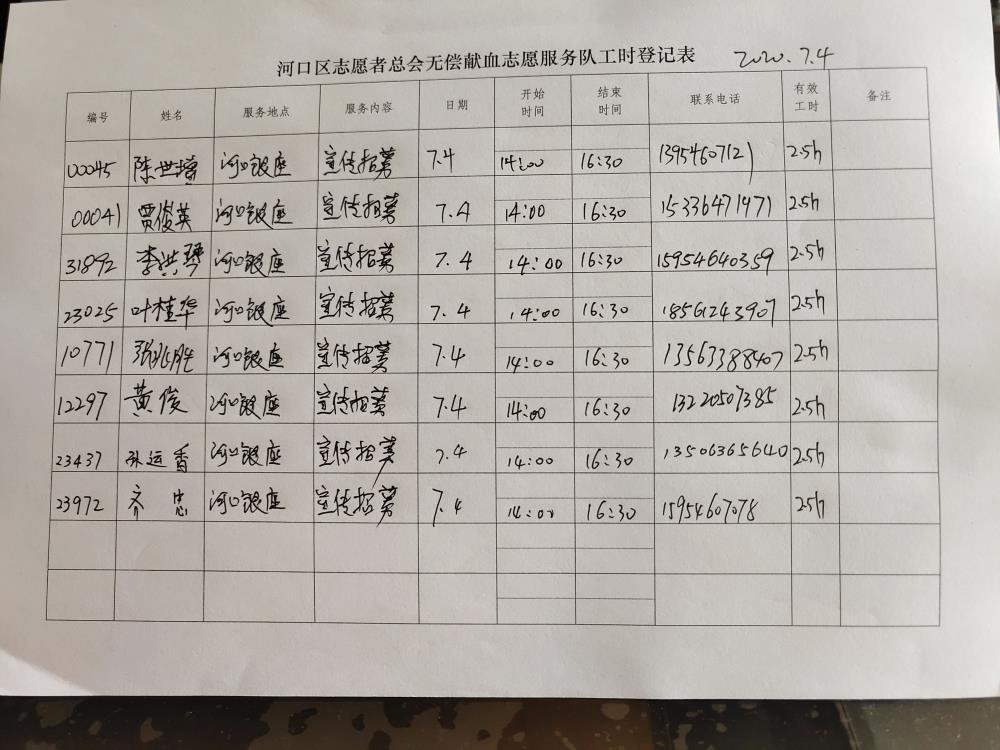 河口区志愿者总会无偿献血志愿服务队工时登记表 2020.7.4
编号 姓名 服务地点 服务内容 日期 开始时间 结束时间 联系电话 有效工时 备注
00045 陈世増 河口银座 宣传招募 7.4 14:00 16:30 1395460712) 2.5h
00041 贾俊英 河口银座 宣传招募 7.4 14:00 16:30 15336471971 2.5h
31892 李洪琴 河口银座 宣传招募 7.4 14:00 16:30 15954640359 2.5h
23025 叶桂华 河口银座 宣传招募 7.4 14:00 16:30 18561243907 2.5h
10771 河口银座 宣传招募 7.4 14:00 16:30 13563388407 2.5h
12297 黄俊 河口银座 宣传招募 7.4 14:00 16:30 13220507385 2.5h
23437 孙运香 河口银座 宣传招募 7.4 14:00 16:30 13506365640 2.5h
23972 齐忠 河口银座 宣传招募 7.4 14:00 16:30 15954607078 2.5h